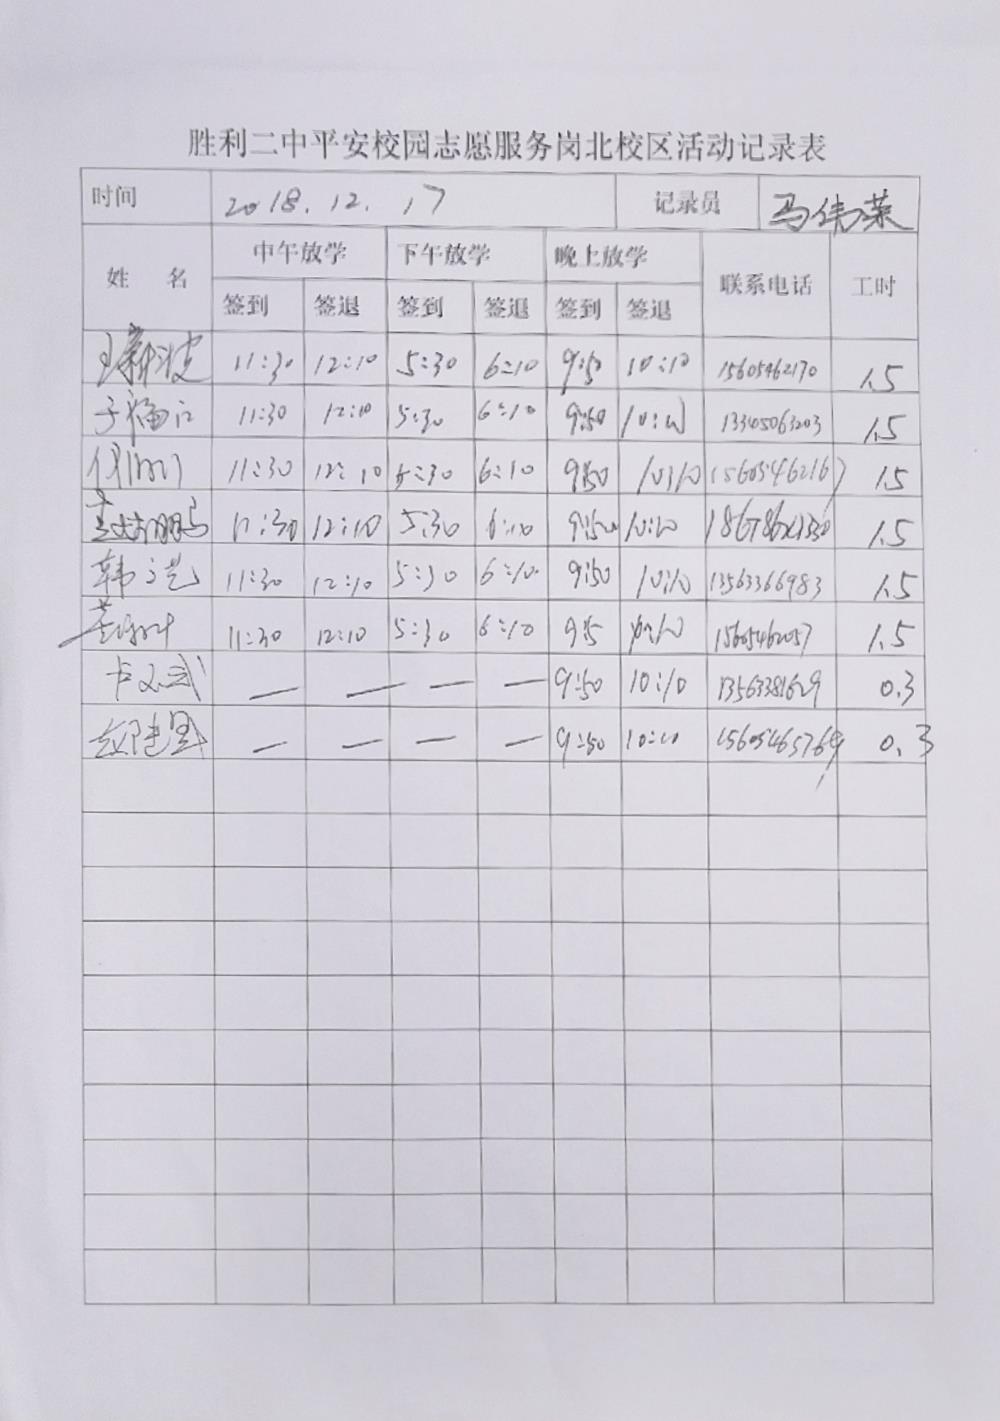 胜利二中平安校园志愿服务岗北校区活动记录表
时间 2018.12.17 记录员 马伟荣
姓 名 中午放学 下午放学 晚上放学 联系电话 工时
签到 签退 签到 签退 签到 签退
王新波 11:30 12:10 5:30 6:10 9:50 10:10 15605462170 1.5
于福江 11:30 12:10 5:30 6:10 9:50 13345063203 1.5
11:30 12:10 5:30 6:10 9:50 10:10 15605462167 1.5
11:30 12:10 5:30 6:10 9:50 10:10 1.5
韩 11:30 12:10 5:30 6:10 9:50 10:10 13563366983 1.5
11:30 12:10 5:30 6:10 9:5 15605462057 1.5
卞文武 — — — — 9:50 10:10 13563381629 0.3
— — — — 9:50 10:10 15605465769 0.3